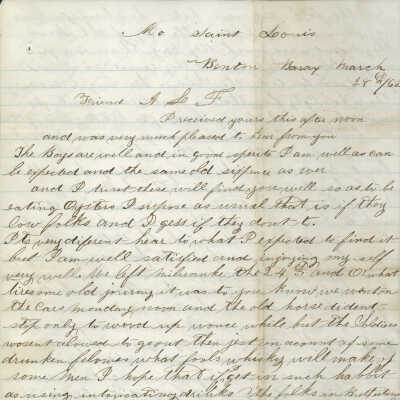 Mo Saint Louis
Benton Barax March
28th/62
Friend A L F
I received yours this after noon
and was very much pleased to hear from you
The Boys are well and in good sperits I am well as can
be expected and the same old sixpence as ever
and I trust these will find you well so as to be
eating Oysters I supose as usual that is if they
Cow folks and I gess if they dont to.
It is very diferent hear to what I expected to find it
but I am well satisfied and injoying my self
very well. We left milwauke the 24th and O what
tiresome old joiney it was to you know we went on
the Cars monday noon and the old horse dident
stop only to wood up wonce while but the Soldiers
wosent alowed to go out then jest on acount of some
drunken felowes what fools whiskey will make of
some men I hope that if get in such habbit
as using intoxicating drinks the folks in